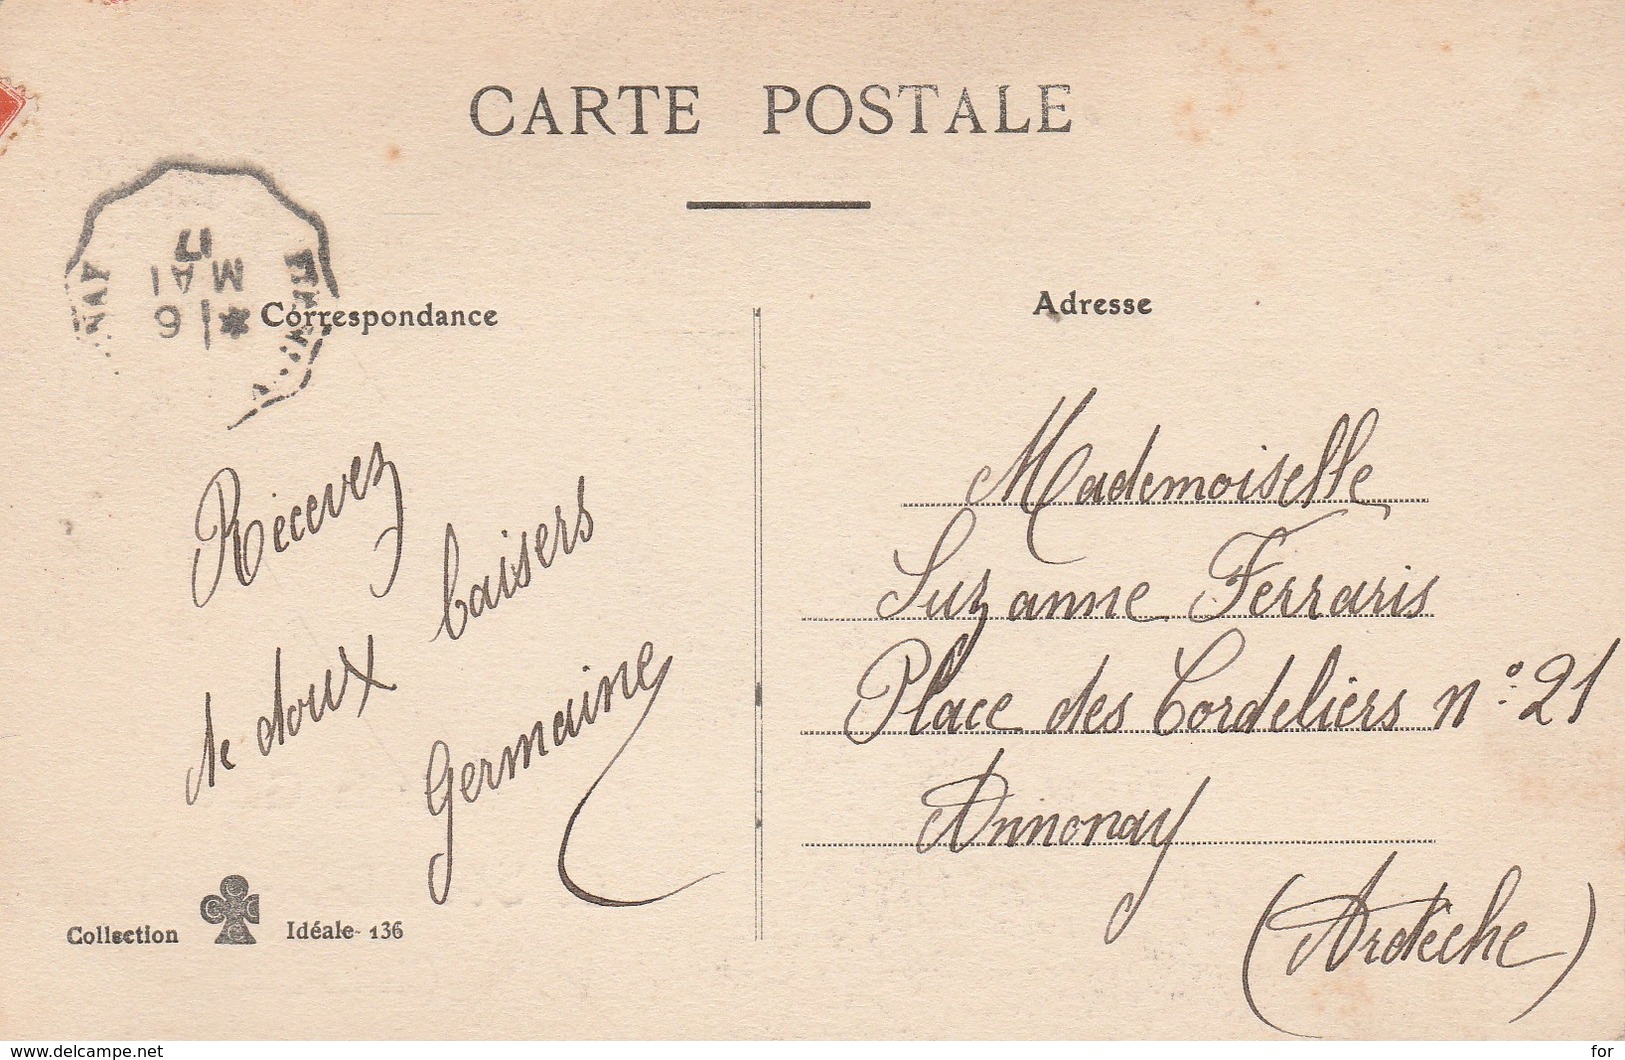 CARTE POSTALE
17
MAI
* 6
NAY
Correspondance
Adresse
Recevez
de doux baisers
Germaine
Mademoiselle
Suzanne Ferraris
Place des Cordeliers n° 21
Annonay
(Ardèche)
Collection Idéale - 136
www.delcampe.net
for